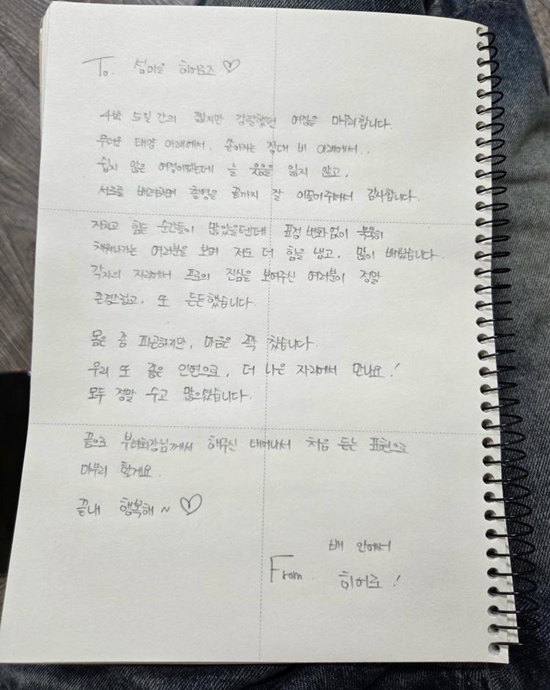 To. 섬마을 히어로즈 ♡
4박 5일간의 짧지만 강렬했던 여정을 마무리합니다.
뜨거운 태양 아래에서, 쏟아지는 장대 비 아래에서..
쉽지 않은 여정이었는데 늘 웃음을 잃지 않고,
서로를 배려하며 촬영을 끝까지 잘 이끌어주셔서 감사합니다.
지치고 힘든 순간들이 많았을텐데 표정 변화 없이 묵묵히
채워나가는 여러분을 보며 저도 더 힘을 냈고, 많이 배웠습니다.
각자의 자리에서 프로의 진심을 보여주신 여러분이 정말
존경스럽고, 또 든든했습니다.
몸은 좀 피곤하지만, 마음은 꽉 찼습니다.
우리 또 좋은 인연으로, 더 나은 자리에서 만나요!
모두 정말 수고 많으셨습니다.
끝으로 부녀회장님께서 해주신 태어나서 처음 듣는 표현으로
마무리 할게요.
끝내 행복해~ ♡
배 안에서
From 히어로!